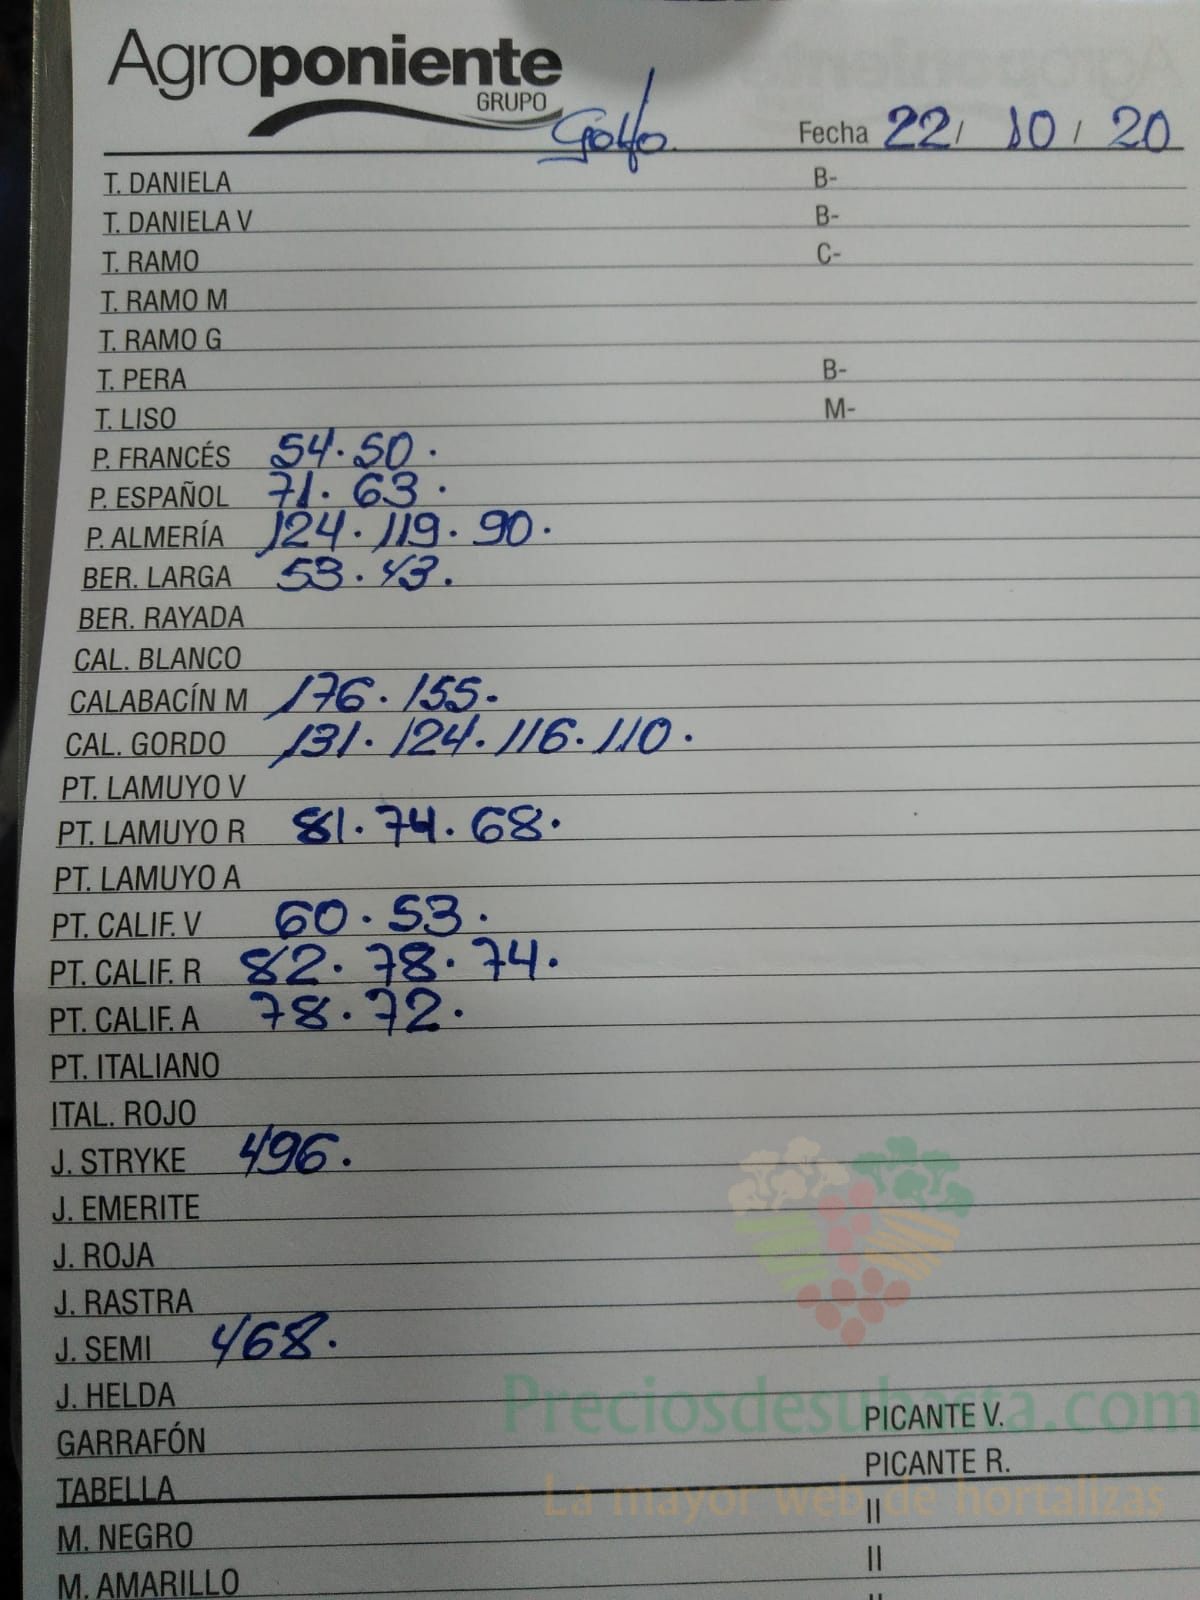 Agroponiente
GRUPO
Golfo. Fecha 22/ 10 / 20
T. DANIELA B-
T. DANIELA V B-
T. RAMO C-
T. RAMO M
T. RAMO G
T. PERA B-
T. LISO M-
P. FRANCÉS 54. 50.
P. ESPAÑOL 71. 63.
P. ALMERÍA 124. 119. 90.
BER. LARGA 53. 43.
BER. RAYADA
CAL. BLANCO
CALABACÍN M 176. 155.
CAL. GORDO 131. 124. 116. 110.
PT. LAMUYO V
PT. LAMUYO R 81. 74. 68.
PT. LAMUYO A
PT. CALIF. V 60. 53.
PT. CALIF. R 82. 78. 74.
PT. CALIF. A 78. 72.
PT. ITALIANO
ITAL. ROJO
J. STRYKE 496.
J. EMERITE
J. ROJA
J. RASTRA
J. SEMI 468.
J. HELDA
Preciosdesubasta.com
GARRAFÓN PICANTE V.
TABELLA PICANTE R.
La mayor web de hortalizas
M. NEGRO II
M. AMARILLO II